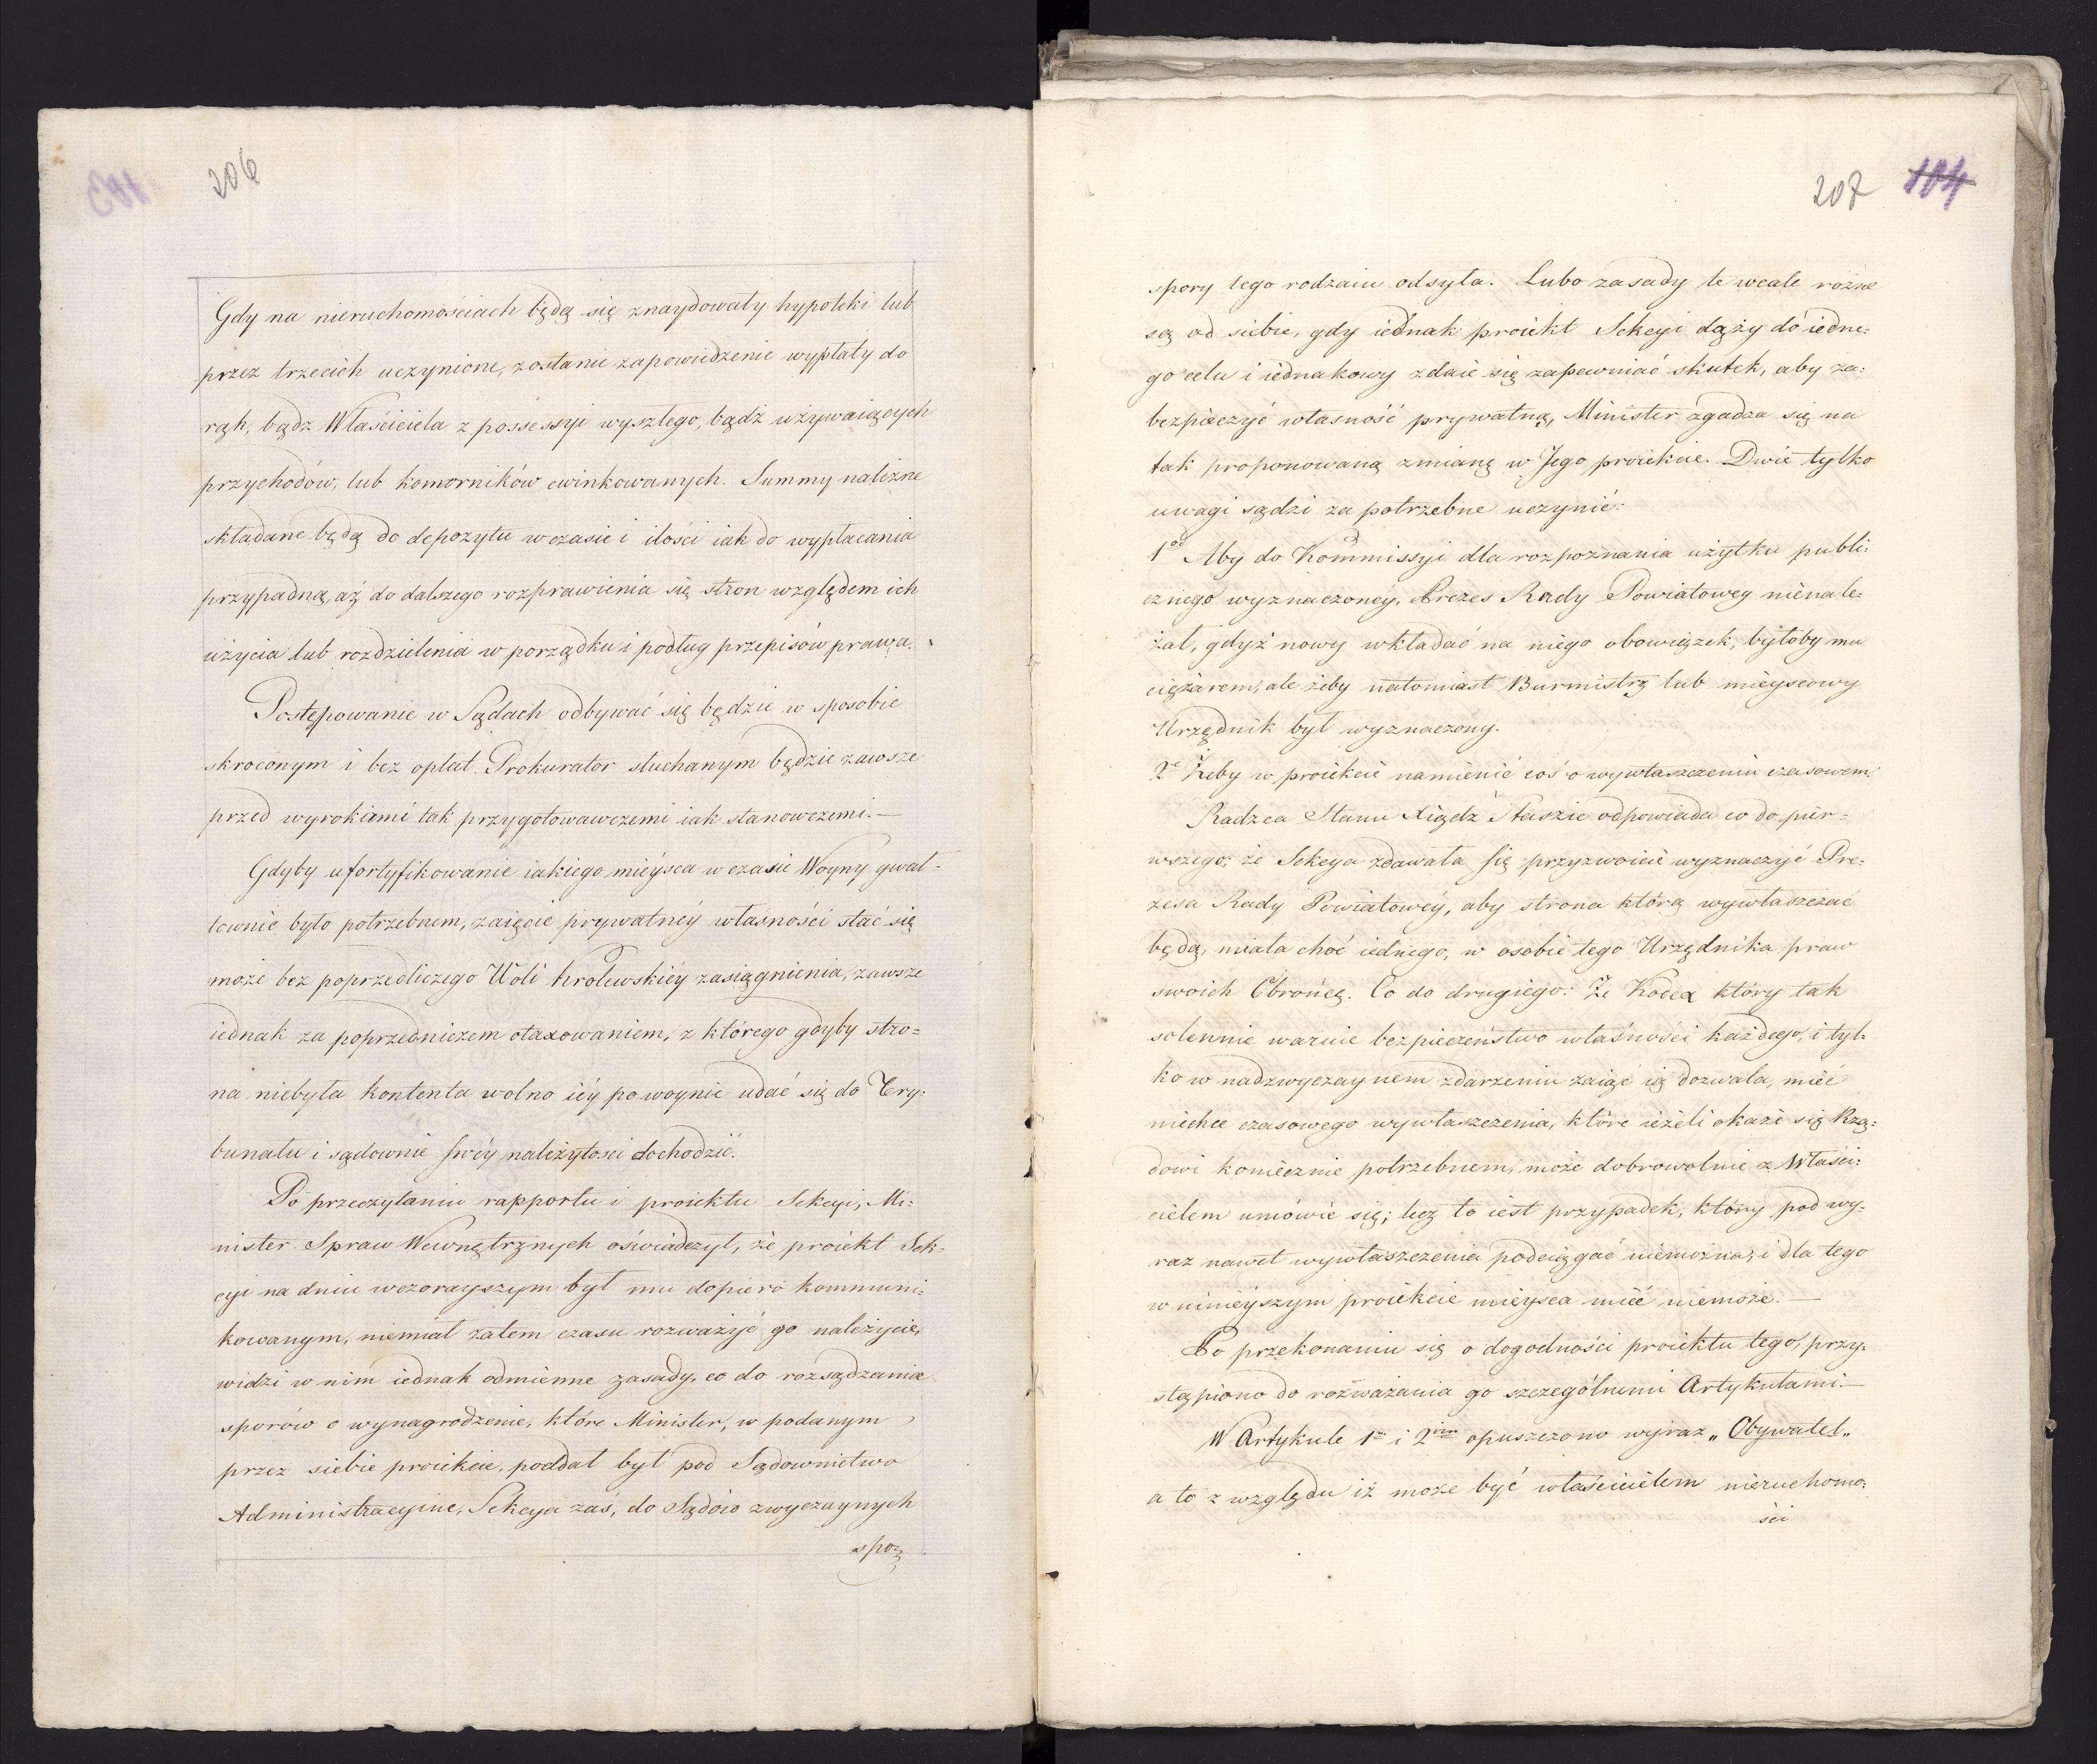 206
Gdy na nieruchomościach będą się znaydowały hypoteki lub
przez trzecich uczynione, zostanie zapowiedzenie wypłaty do
rąk, bądz Właściciela z possessyi wyszłego, bądź używaiących
przychodów, lub komorników ewinkowanych. Summy należne
składane będą do depozytu w czasie i ilości iak do wypłacania
przypadną, aż do dalszego rozprawienia się stron względem ich
użycia lub rozdzielenia w porządku i podług przepisów prawa.
Postępowanie w Sądach odbywać się będzie w sposobie
skroconym i bez opłat. Prokurator słuchanym będzie zawsze
przed wyrokiami tak przygotowawczemi iak stanowczemi.—
Gdyby ufortyfikowanie iakiego mieysca w czasie Woyny gwał-
townie było potrzebnem, zaięcie prywatnéy własności stać się
może bez poprzedliczego Woli Krolewskiéy zasiągnienia, zawsze
iednak za poprzedniczem otaxowaniem, z którego gdyby stro=
na niebyła kontenta wolno iéy po woynie udać się do Try:
bunału i sądownie swéy należytosci dochodzić.
Po przeczytaniu rapportu i proiektu Sekcyi, Mi:
nister Spraw Wewnętrznych oświadczył, że proiekt Sek:
cyi na dniu wczorayszym był mu dopiero kommuni:
kowanym, niemiał zatem czasu rozważyć go należycie,
widzi w nim iednak odmienne zasady, co do rozsądzania
sporów o wynagrodzenie, które Minister, w podanym
przez siebie proiekcie, poddał był pod Sądownictwo
Administracyine, Sekcya zaś, do Sądów zwyczaynych
spo:
207 104
spory tego rodzaiu odsyła. Lubo zasady te wcale rożne
są od siebie, gdy iednak proiekt Sekcyi dąży do iedne:
go celu i iednakowy zdaie się zapewniać skutek, aby za:
bezpieczyć własność prywatną, Minister zgadza się na
tak proponowaną zmianę w Jego proiekcie. Dwie tylko
uwagi sądzi za potrzebne uczynić:
1od Aby do Kommissyi dla rozpoznania użytku publi:
cznego wyznaczoney, Prezes Rady Powiatowey nienale:
żał, gdyż nowy wkładać na niego obowiązek, byłoby mu
ciężarem, ale żeby natomiast Burmistrz lub mieyscowy
Urzędnik był wyznaczony.
2e Żeby w proiekcie namienić coś o wywłaszczeniu czasowem.
Radzca Stanu Xiądz Staszic odpowiada co do pier=
wszego; że Sekcya zdawała się przyzwoicie wyznaczyć Pre:
zesa Rady Powiatowéy, aby strona którą wywłaszczać
będą, miała choć iednego, w osobie tego Urzędnika praw
swoich Obrońcę. Co do drugiego: Że Kodex który tak
solennie waruie bezpieczeństwo własności każdego, i tyl:
ko w nadzwyczaynem zdarzeniu zaiąć ią dozwala, mieć
niechce czasowego wywłaszczenia, które ieżeli okaże się Rzą:
dowi koniecznie potrzebnem, może dobrowolnie z Właści:
cielem umówić się; lecz to iest przypadek, który pod wy:
raz nawet wywłaszczenia podciągać niemożna, i dla tego
w ninieyszym proiekcie mieysca mieć niemoże.—
Po przekonaniu się o dogodności proiektu tego, przy:
stąpiono do rozważania go szczególnemi Artykułami.—
W Artykule 1m i 2im opuszczono wyraz „Obywatel„
a to z względu iż może być właścicielem nieruchomo:
ści